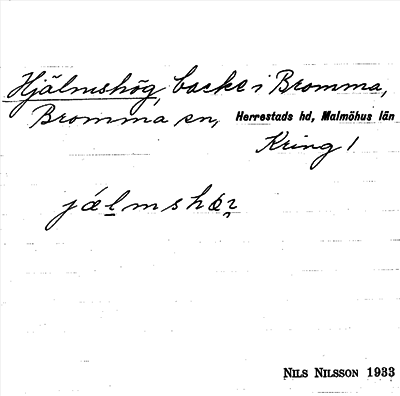 Hjälmshög, backe i Bromma,
Bromma sn, Herrestads hd, Malmöhus län
Kring 1
jælmshøʔ
NILS NILSSON 1933